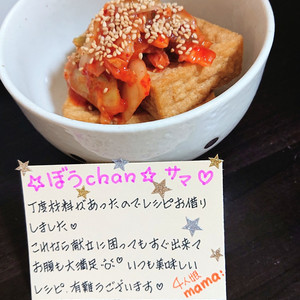 ☆ぼうchan☆サマ♡
丁度材料があったのでレシピお借り
しました♡
これなら献立に困ってもすぐ出来て
お腹も大満足 いつも美味しい
レシピ、有難うございます♡
4人姫
mama: